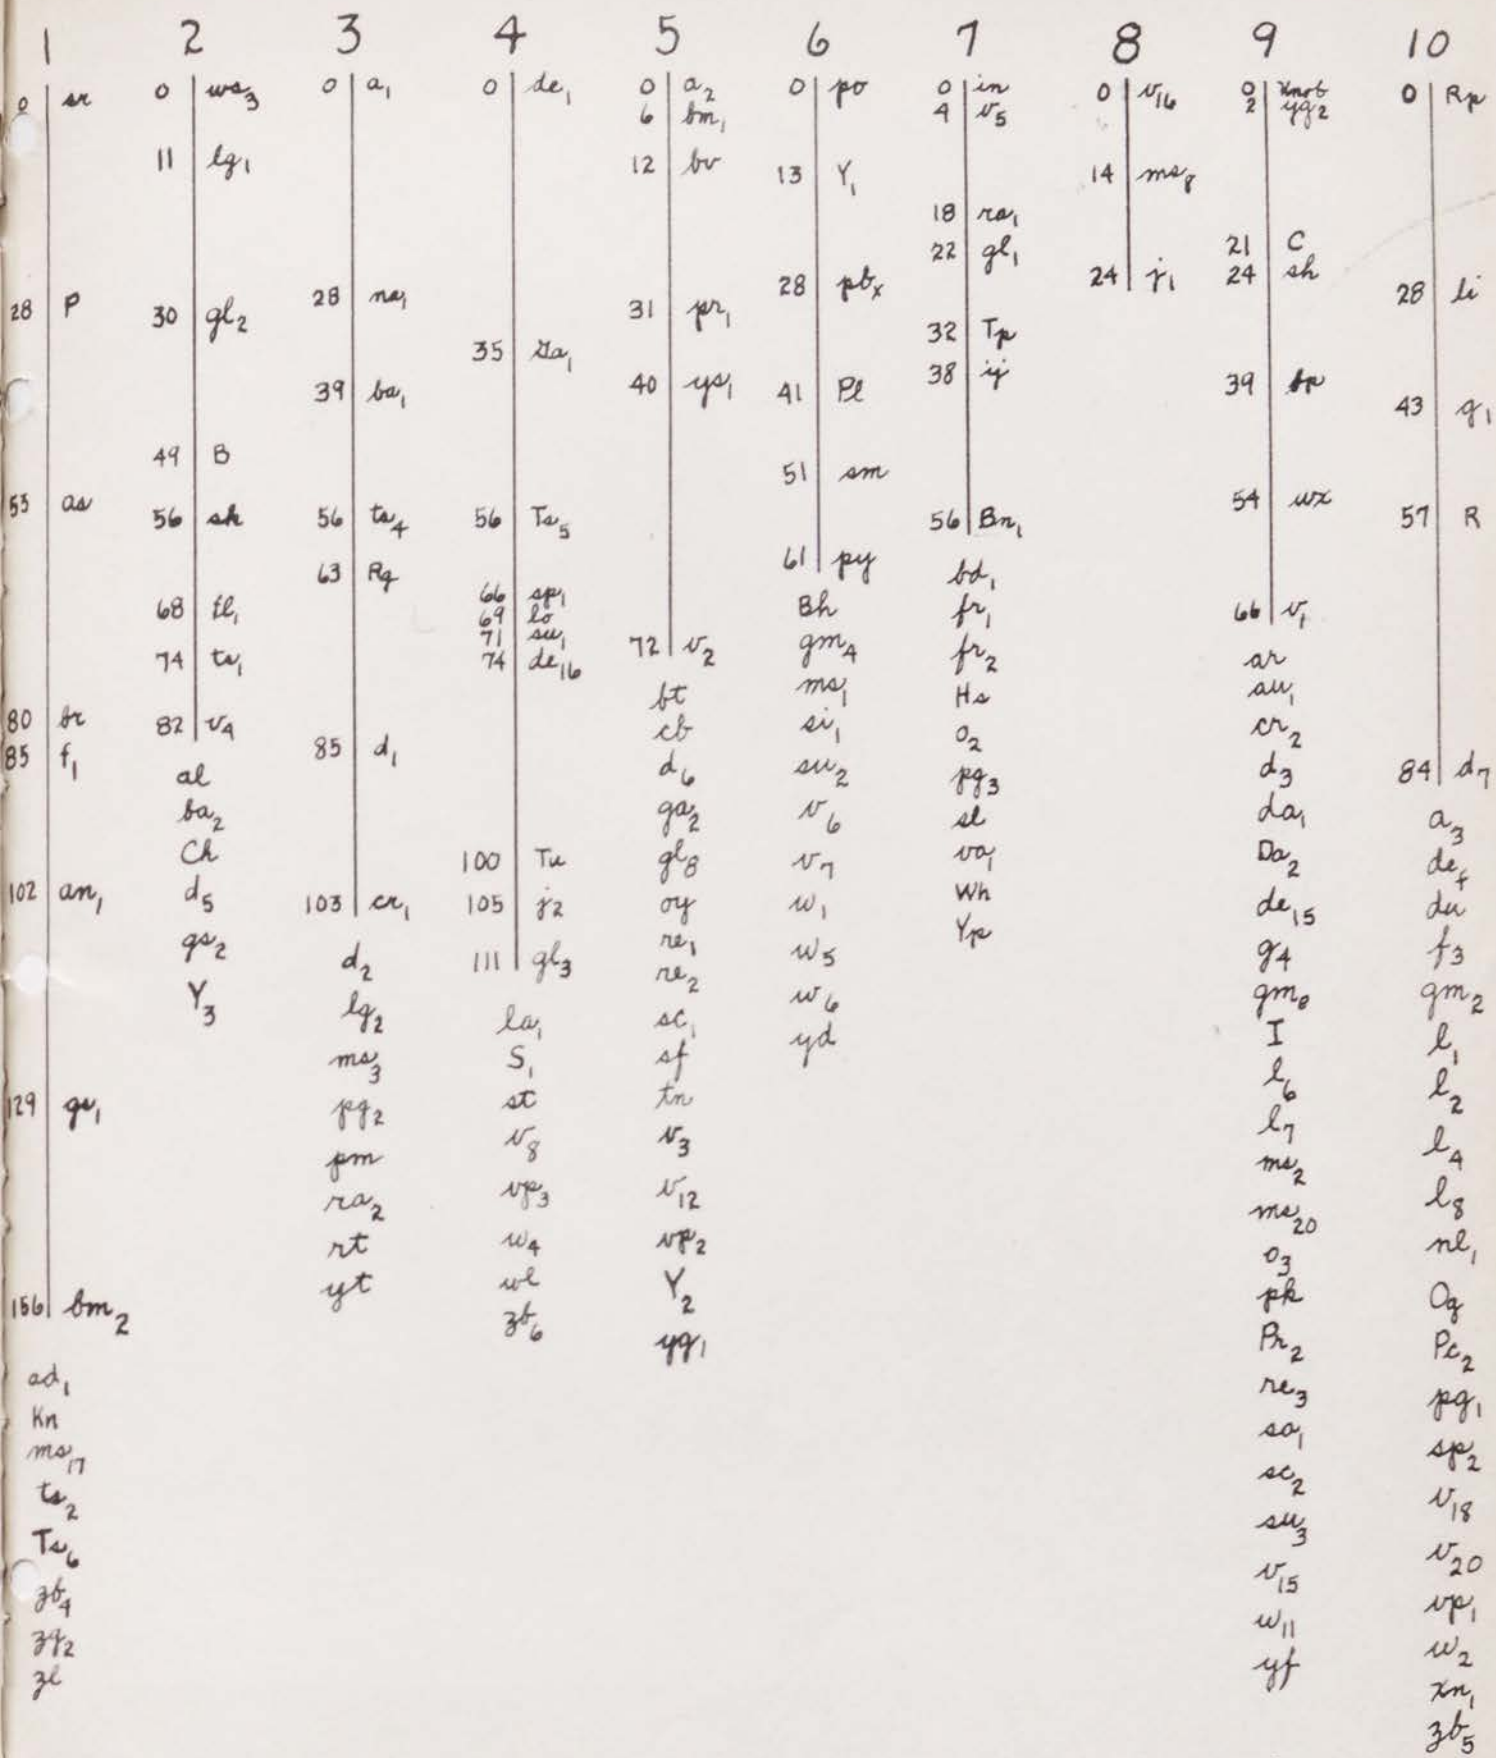 1
0 sr
28 P
53 as
80 br
85 f1
102 an1
129 gs1
156 bm2
ad1
Kn
ms17
ts2
Ts6
zb4
zg2
zl
2
0 ws3
11 lg1
30 gl2
49 B
56 sk
68 tl1
74 ts1
82 v4
al
ba2
Ch
d5
gs2
Y3
3
0 a1
28 na1
39 ba1
56 ts4
63 Rg
85 d1
103 cr1
d2
lg2
ms3
pg2
pm
ra2
rt
yt
4
0 de1
35 Da1
56 Ts5
66 sp1
69 lo
71 su1
74 de16
100 Tu
105 j2
111 gl3
la1
S1
st
v8
vp3
w4
wl
zb6
5
0 a2
6 bm1
12 bv
31 pr1
40 ys1
72 v2
bt
cb
d6
ga2
gl8
oy
re1
re2
sc1
sf
tn
v3
v12
vp2
Y2
yg1
6
0 po
13 Y1
28 pbx
41 Pl
51 sm
61 py
Bh
gm4
ms1
si1
su2
v6
v7
w1
w5
w6
yd
7
0 in
4 v5
18 ra1
22 gl1
32 Tp
38 ij
56 Bn1
bd1
fr1
fr2
Hs
o2
pg3
sl
va1
Wh
Yp
8
0 v16
14 ms8
24 j1
9
0 Knob
2 yg2
21 C
24 sh
39 bp
54 wx
66 v1
ar
au1
cr2
d3
da1
Da2
de15
g4
gm8
I
l6
l7
ms2
ms20
o3
pk
Pr2
re3
sa1
sc2
su3
v15
w11
yf
10
0 Rp
28 li
43 g1
57 R
84 d7
a3
def
du
f3
gm2
l1
l2
l4
l8
nl1
Og
Pc2
pg1
sp2
v18
v20
vp1
w2
xn1
zb5